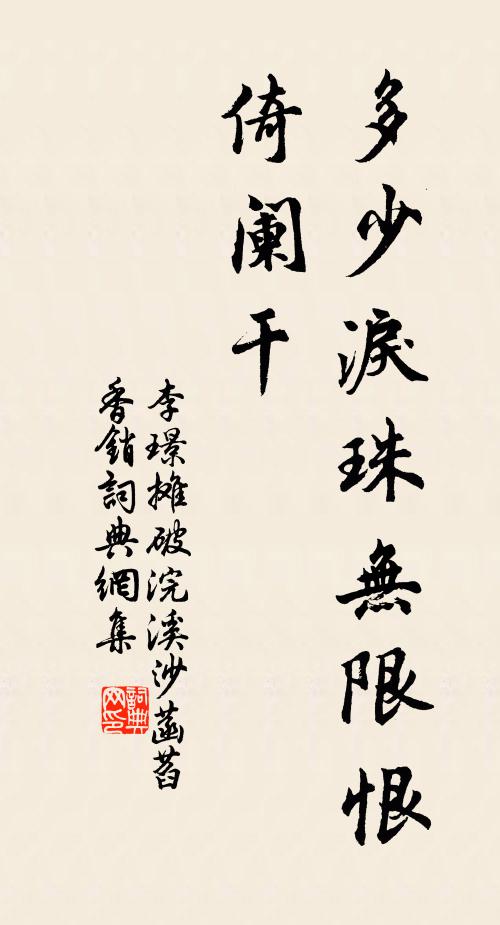 多少淚珠無限恨
倚阑干
李璟摊破浣溪沙菡萏
香銷詞典網集
詞典
网印